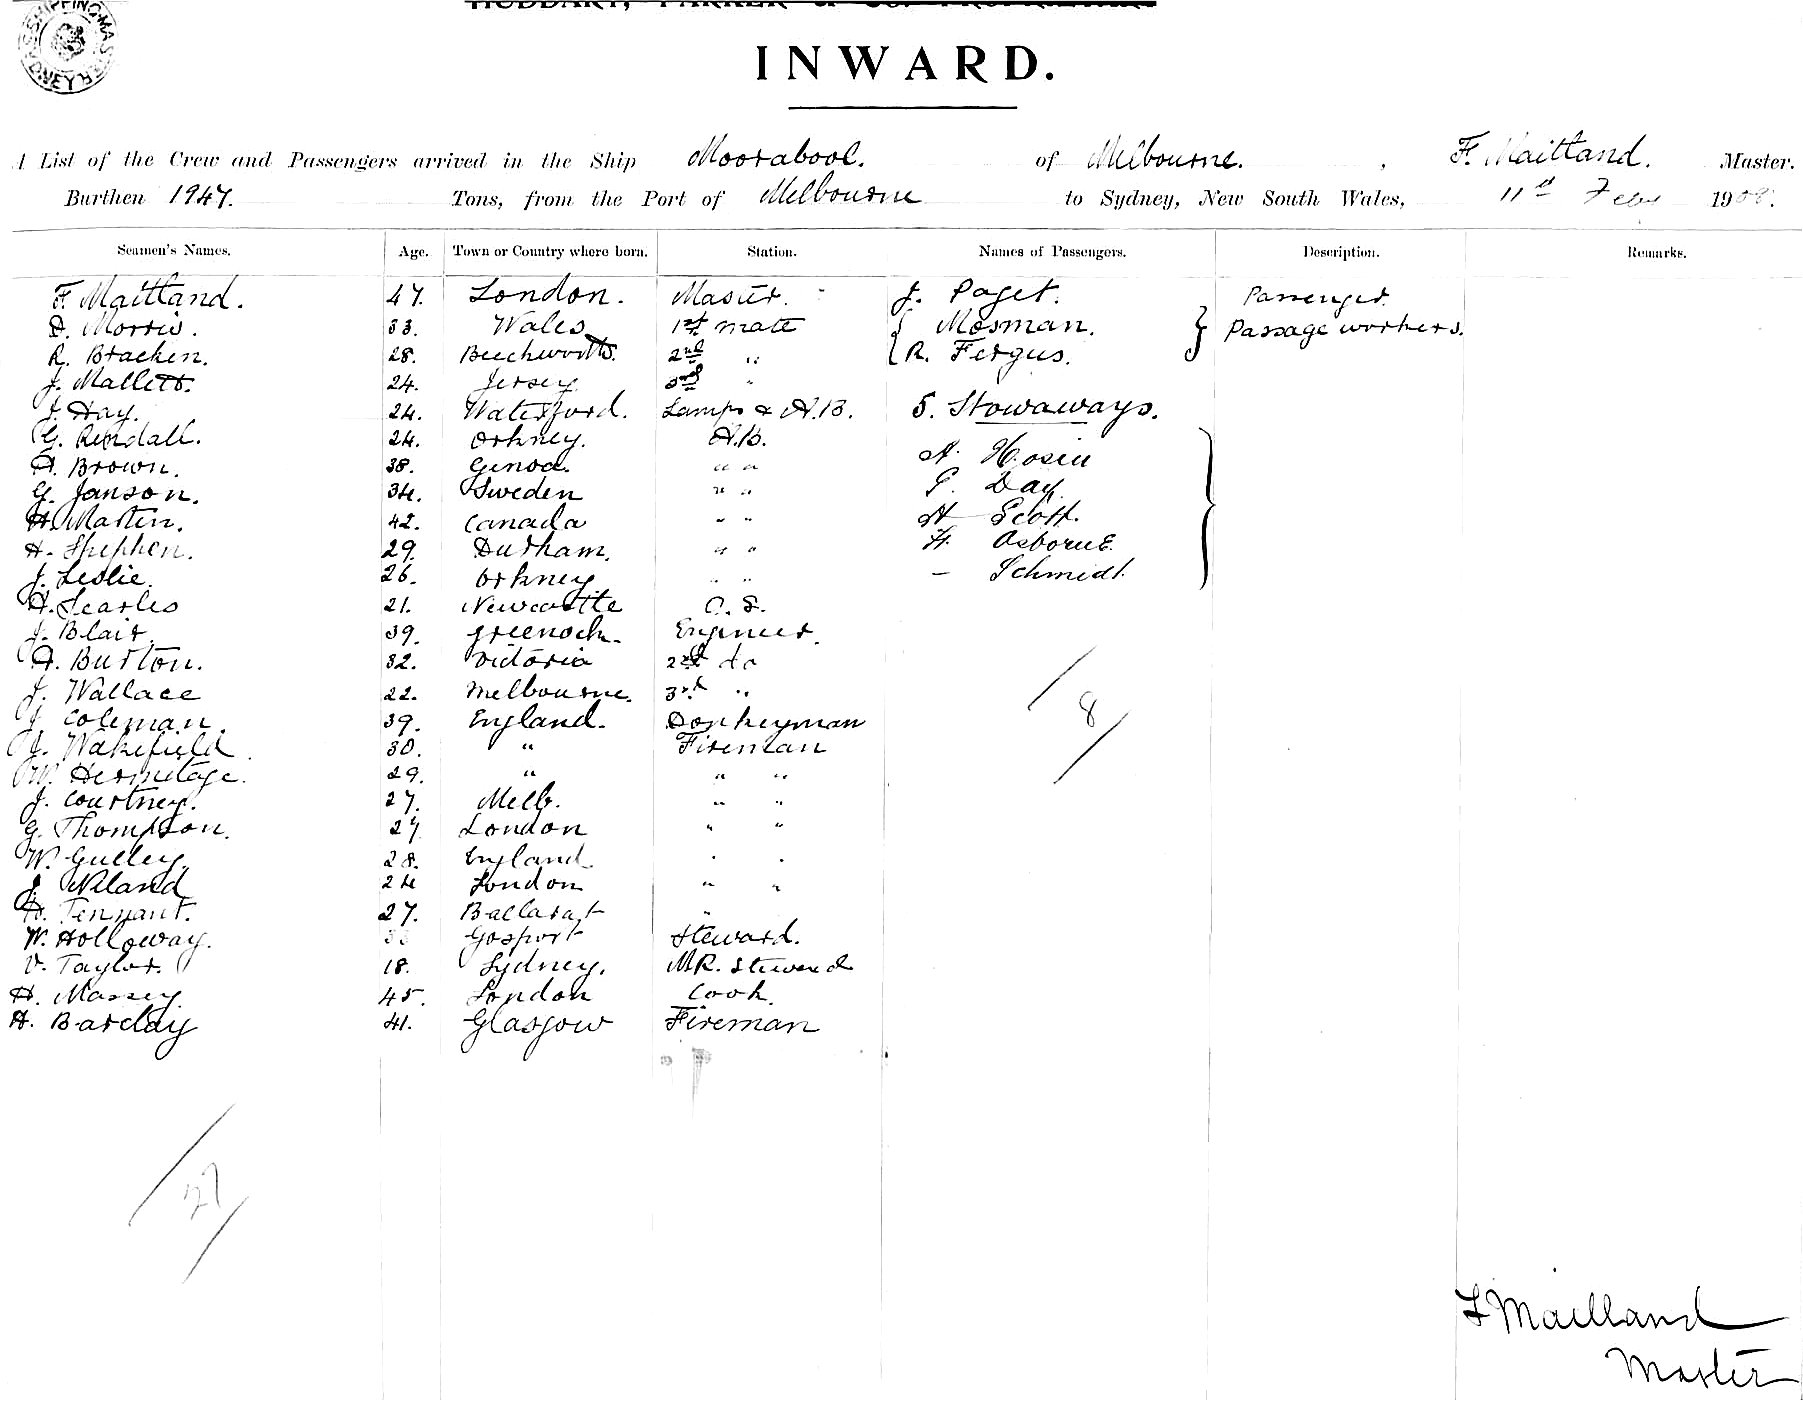 SHIPPING MAS
SYDNEY
HUDDART, PARKER & CO. PROPRIETARY
INWARD.
A List of the Crew and Passengers arrived in the Ship Moorabool. of Melbourne. , F. Maitland. Master.
Burthen 1947. Tons, from the Port of Melbourne to Sydney, New South Wales, 11th Feby 1908.
Seamen's Names. Age. Town or Country where born. Station. Names of Passengers. Description. Remarks.
F. Maitland. 47. London. Master. J. Paget. Passenger.
D. Morris. 33. Wales 1st mate { Mosman. } Passage workers.
R. Bracken. 28. Beechworth. 2nd " { R. Fergus. }
J. Mallett. 24. Jersey 3rd "
J. Hay. 24. Waterford. Lamps & A.B. 5. Stowaways.
G. Rendall. 24. Orkney. A.B.
A. Brown. 38. Genoa. " " A. Hosin
G. Janson. 34. Sweden " " G. Day
H. Martin. 42. Canada " " A Scott.
H. Stephen. 29. Durham. " " H. Osborne.
J. Leslie. 26. Orkney " " – Schmidt.
A. Searles 21. Newcastle O.S.
J. Blair. 39. Greenock. Engineer.
A. Burton. 32. Victoria 2nd do
J. Wallace 22. Melbourne. 3rd "
J. Coleman. 39. England. Donkeyman 8
J. Wakefield. 30. " Fireman
W. Hermitage. 29. " " "
J. Courtney. 27. Melb. " "
G. Thompson. 27 London " "
W. Gulley. 28. England. " "
J. 24 London " "
H. Tennant. 27. Ballarat "
W. Holloway. 33 Gosport Steward.
V. Taylor. 18. Sydney. MR. Steward
H. Massey. 45. London Cook.
A. Barclay 41. Glasgow Fireman
27
F Maitland
Master